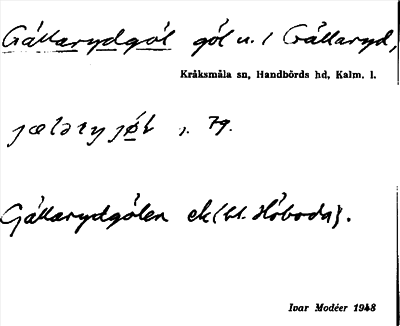 Gållarydgöl göl n. / Gållaryd,
Kråksmåla sn, Handbörds hd, Kalm. l.
s. 79.
Gjällarydgölen ek (bl. Höboda).
Ivar Modéer 1948